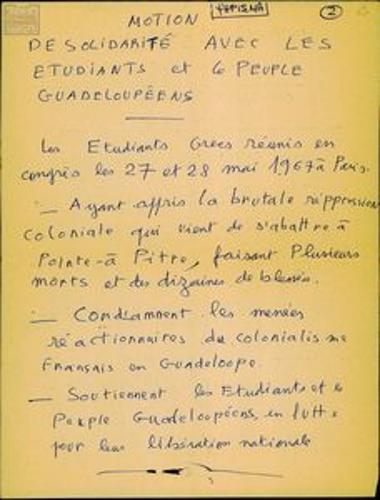 MOTION
②
DE SOLIDARITÉ AVEC LES
ETUDIANTS et le PEUPLE
GUADELOUPÉENS
Les Etudiants Grecs réunis en
congrès les 27 et 28 mai 1967 à Paris.
— Ayant appris la brutale répression
coloniale qui vient de s'abattre à
Pointe-à Pitre, faisant Plusieurs
morts et des dizaines de blessés.
— Condamnent les menées
réactionnaires du colonialisme
Français en Guadeloupe
— Soutiennent les Etudiants et le
Peuple Guadeloupéens, en lutte
pour leur libération nationale